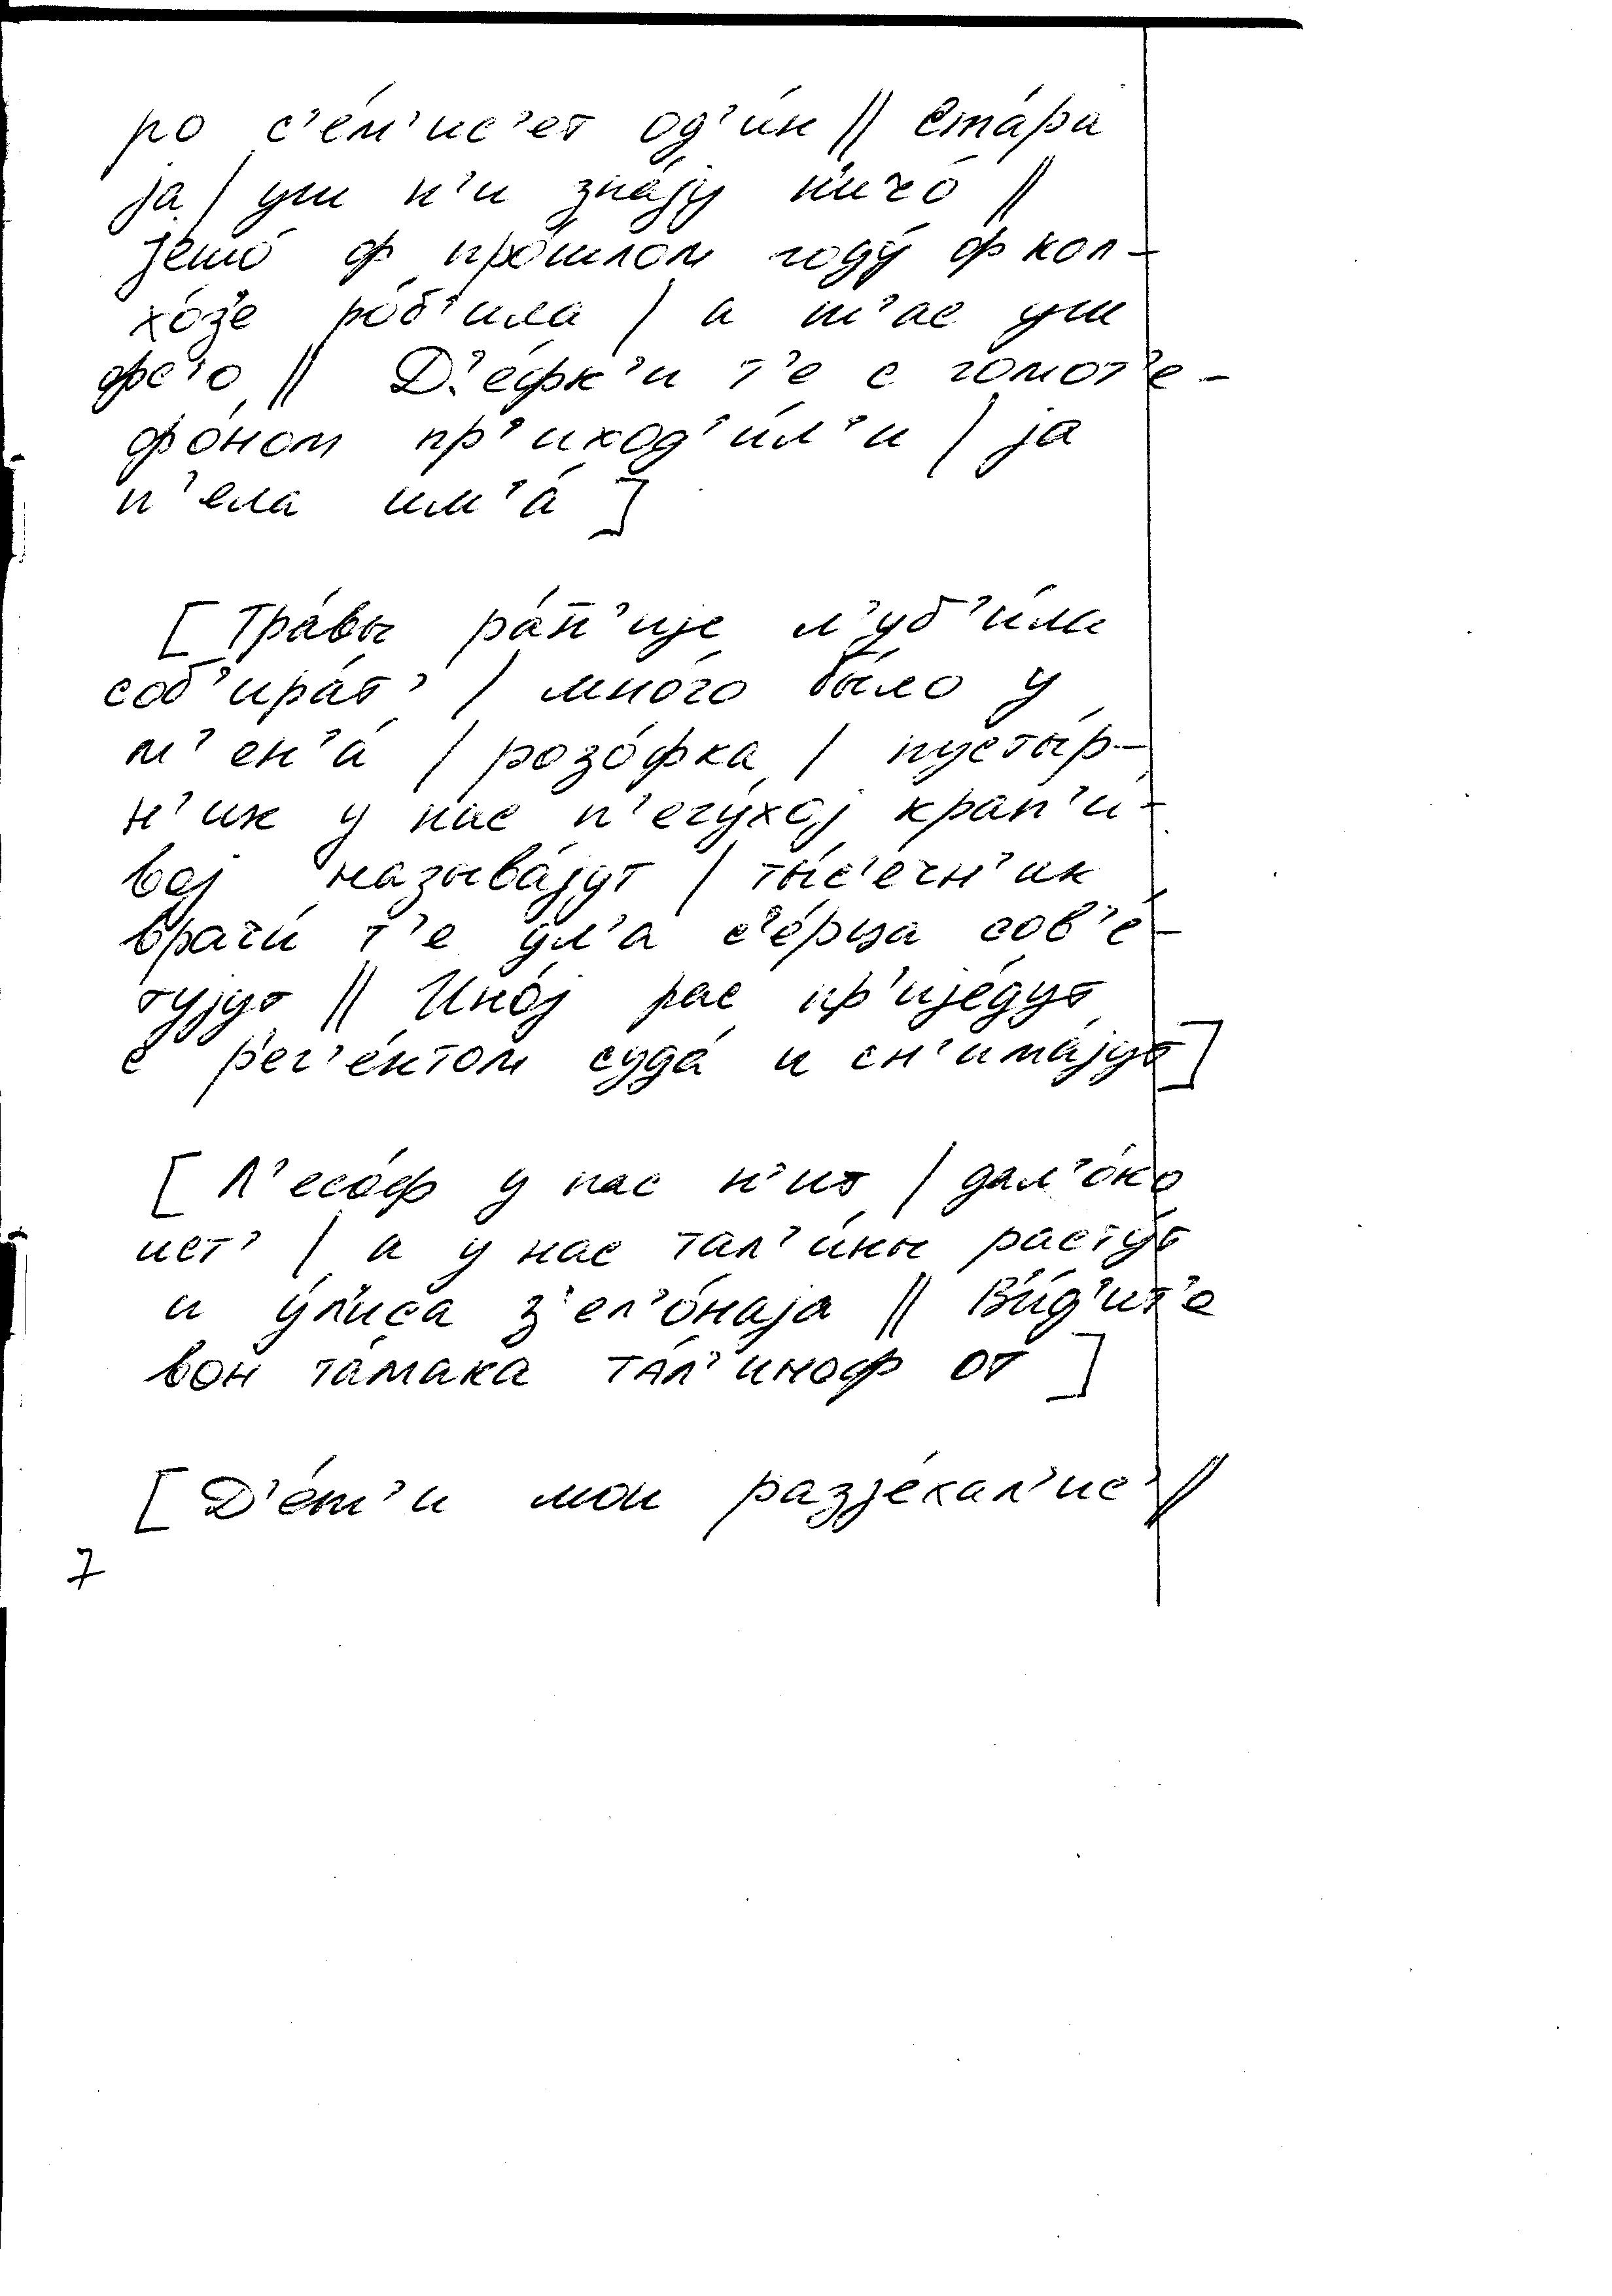 ро с'е́м'ис'ет од'и́н || Ста́ра
jа | уш н'и зна́jу н'ичо́ ||
jешо́ ф про́шлом году́ ф кол-
хо́з'е ро́б'ила | а ш'ас уш
фс'о || Д'е́фк'и т'е с гомот'е-
фо́ном пр'иход'и́л'и | jа
п'ела им'а́ ]
[ Тра́вы ра́н'иjе л'уб'и́ла
соб'ира́т' | мно́го бы́ло у
м'ен'а́ | розо́фка | пусты́р-
н'ик у нас п'егу́хоj крап'и́-
воj называ́jут | ты́с'ечн'ик
врачи́ т'е дл'а с'е́рца сов'е́-
туjут || Ино́j рас пр'иjе́дут
с р'ег'е́нтом суда́ и сн'има́jут ]
[ Л'есо́ф у нас н'ит | дал'о́ко
ист' | а у нас тал'и́ны расту́т
и у́л'иса з'ел'о́наjа || В'и́д'ит'е
вон та́мака та́л'иноф от ]
[ Д'е́т'и мои разjе́хал'ис' ||
7